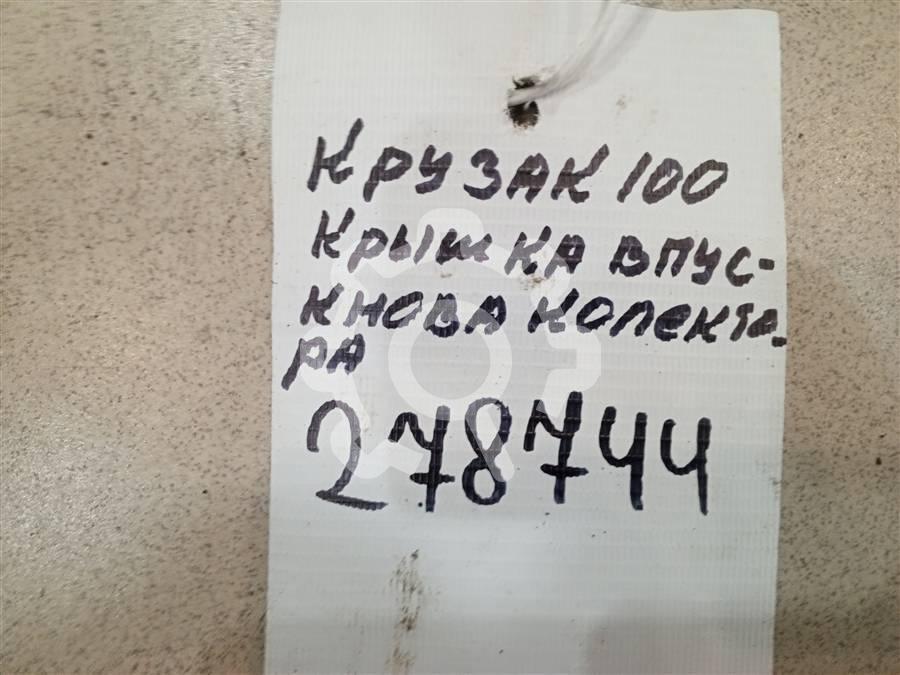 КРУЗАК 100
КРЫШКА ВПУС-
КНОВА КОЛЕКТО-
РА
278744